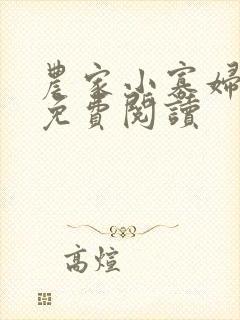 農家小寡婦
免費閱讀
高煊